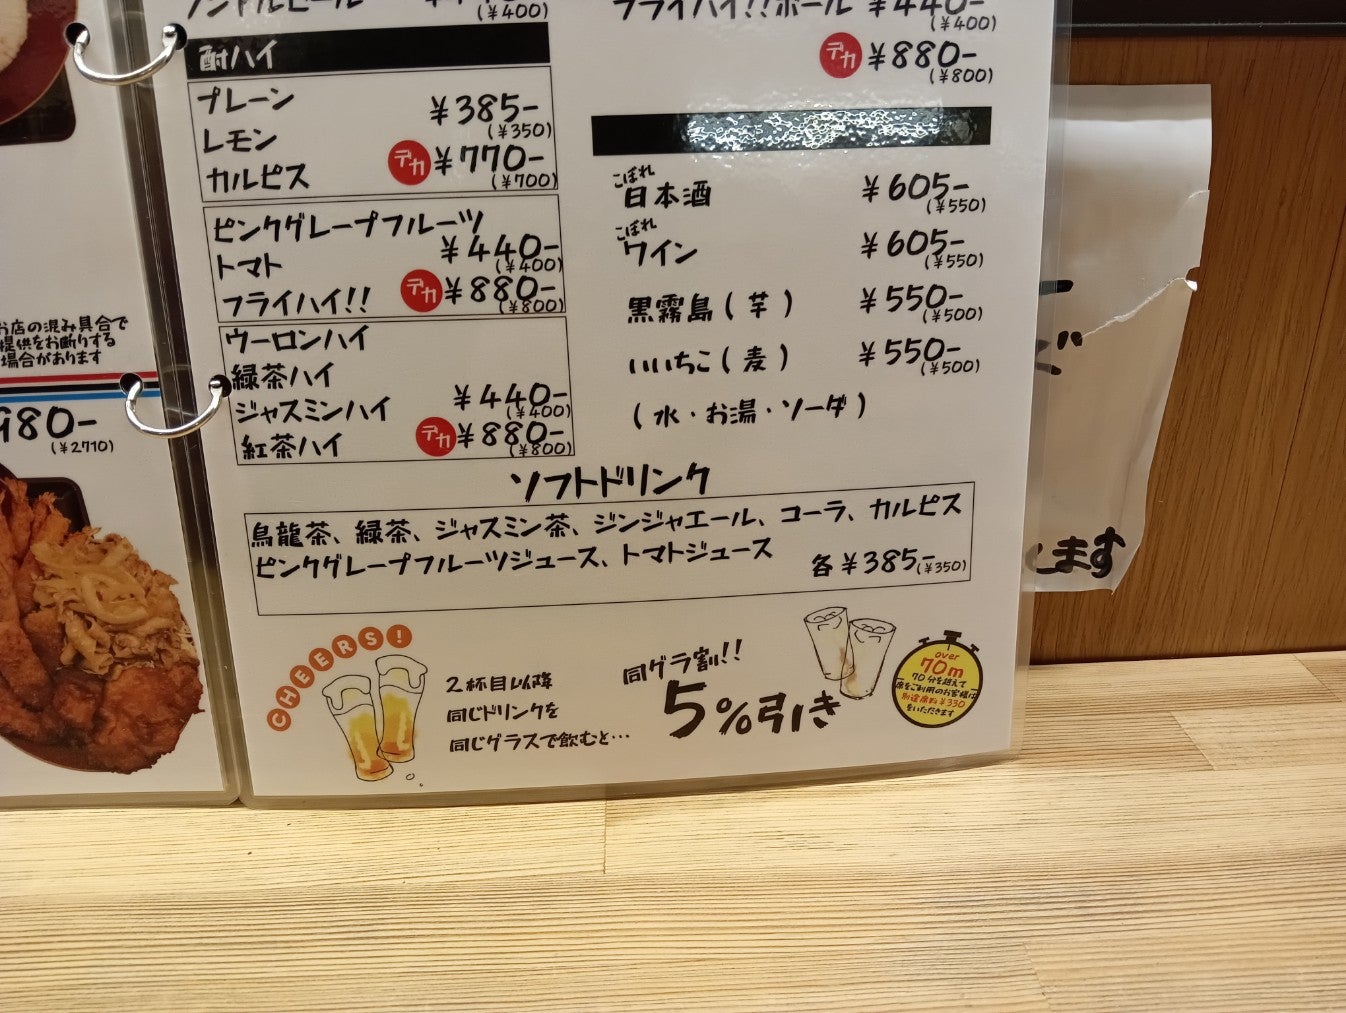 (¥400)
酎ハイ
プレーン
レモン
カルピス
¥385-
(¥350)
デカ ¥770-
(¥700)
ピンクグレープフルーツ
トマト
フライハイ!!
¥440-
(¥400)
デカ ¥880-
(¥800)
ウーロンハイ
緑茶ハイ
ジャスミンハイ
紅茶ハイ
¥440-
(¥400)
デカ ¥880-
(¥800)
フライハイ!!ボール ¥440-
(¥400)
デカ ¥880-
(¥800)
こぼれ
日本酒 ¥605-
(¥550)
こぼれ
ワイン ¥605-
(¥550)
黒霧島(芋) ¥550-
(¥500)
いいちこ(麦) ¥550-
(¥500)
(水・お湯・ソーダ)
ソフトドリンク
烏龍茶、緑茶、ジャスミン茶、ジンジャエール、コーラ、カルピス
ピンクグレープフルーツジュース、トマトジュース
各¥385-(¥350)
CHEERS!
2杯目以降
同じドリンクを
同じグラスで飲むと…
同グラ割!!
5%引き
over
70m
70分を超えて
席をご利用のお客様は
別途席料¥330
をいただきます
お店の混み具合で
提供をお断りする
場合があります
980-
(¥2710)
します